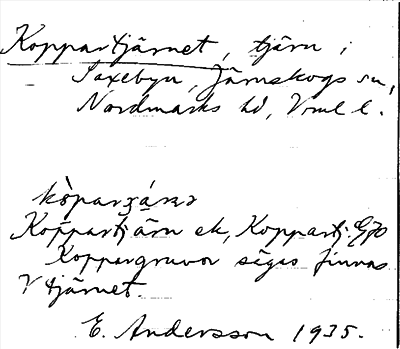 Koppartjärnet, tjärn i
Saxebyn, Järnskogs sn,
Nordmarks hd, Vrml l.
Koppartjärn ek, Koppartj. GJO
Koppargruvor sägas finnas
V tjärnet.
E. Andersson 1935.